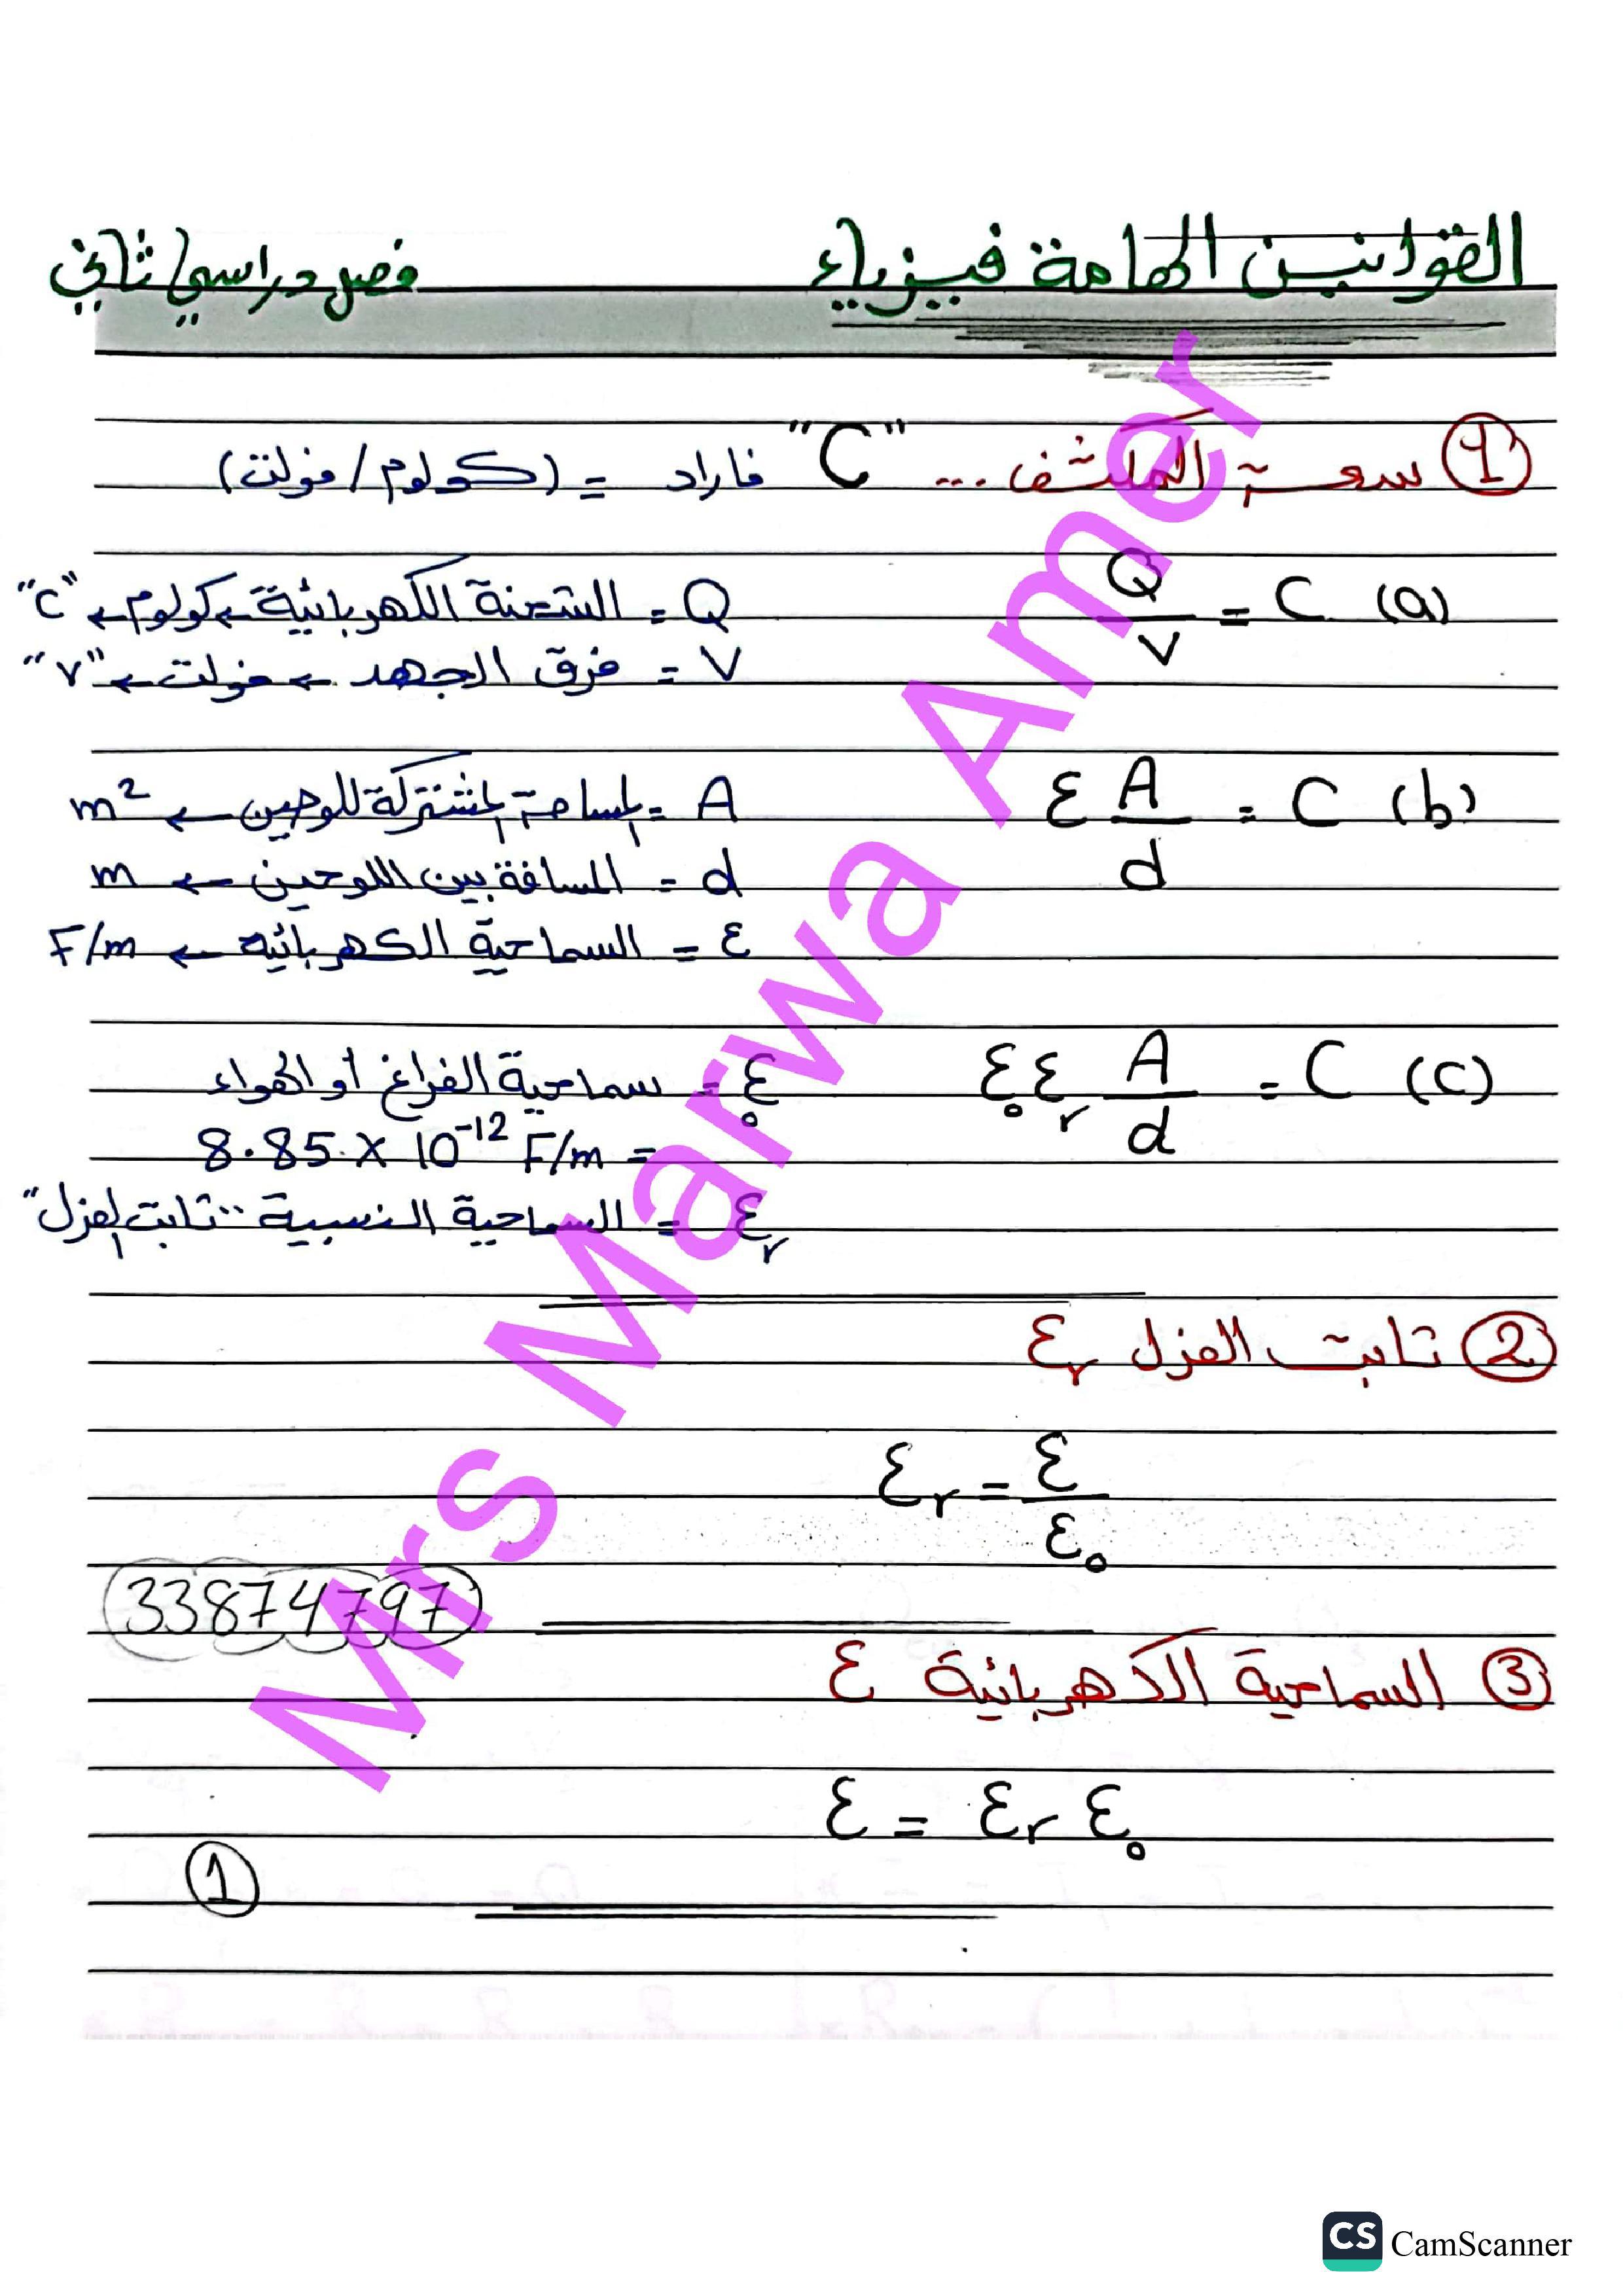 القوانين الهامة فيزياء فصل دراسي ثاني
① سعة المكثف ... "C" فاراد = (كولوم/فولت)
(a) C = Q/V
Q = الشحنة الكهربائية ← كولوم ← "C"
V = فرق الجهد ← فولت ← "V"
(b) C = ε A/d
A = المساحة المشتركة للوحين ← m²
d = المسافة بين اللوحين ← m
ε = السماحية الكهربائية ← F/m
(c) C = ε₀ εr A/d
ε₀ = سماحية الفراغ أو الهواء
= 8.85 x 10⁻¹² F/m
εr = السماحية النسبية "ثابت العزل"
② ثابت العزل εr
εr = ε/ε₀
33874797
③ السماحية الكهربائية ε
ε = εr ε₀
①
Mrs Marwa Amer
CS CamScanner